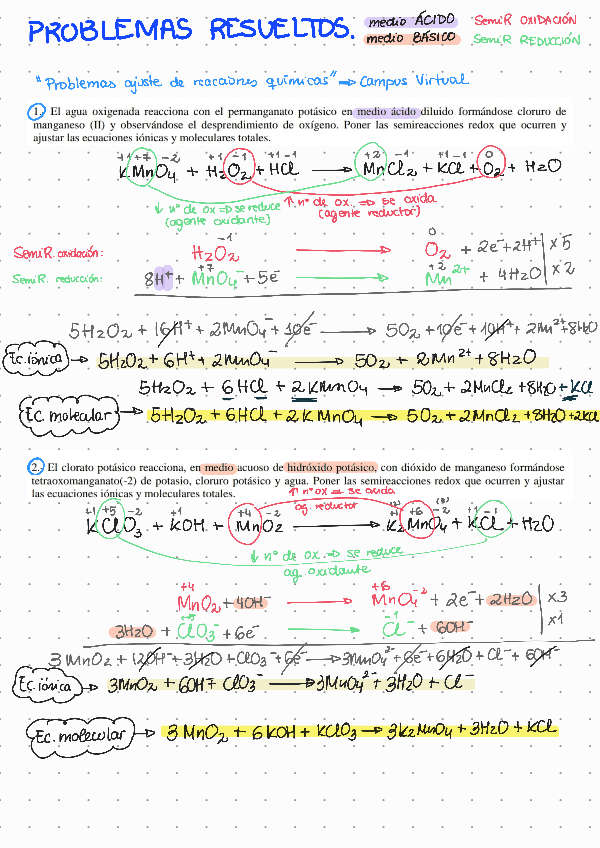 PROBLEMAS RESUELTOS. medio ÁCIDO SemiR OXIDACIÓN
medio BÁSICO SemiR REDUCCIÓN
"Problemas ajuste de reacciones químicas" → Campus Virtual
1. El agua oxigenada reacciona con el permanganato potásico en medio ácido diluido formándose cloruro de
manganeso (II) y observándose el desprendimiento de oxígeno. Poner las semirreacciones redox que ocurren y
ajustar las ecuaciones iónicas y moleculares totales.
+1 +7 -2 +1 -1 +1 -1 +2 -1 +1 -1 0
KMnO4 + H2O2 + HCl → MnCl2 + KCl + O2 + H2O
↓ nº de ox ⇒ se reduce ↑ nº de ox. ⇒ se oxida
(agente oxidante) (agente reductor)
-1 0
SemiR. oxidación: H2O2 → O2 + 2e⁻ + 2H⁺ | x 5
+7 +2
SemiR. reducción: 8H⁺ + MnO4⁻ + 5e⁻ → Mn²⁺ + 4H2O | x 2
5H2O2 + 16H⁺ + 2MnO4⁻ + 10e⁻ → 5O2 + 10e⁻ + 10H⁺ + 2Mn²⁺ + 8H2O
Ec. iónica → 5H2O2 + 6H⁺ + 2MnO4⁻ → 5O2 + 2Mn²⁺ + 8H2O
5H2O2 + 6HCl + 2KMnO4 → 5O2 + 2MnCl2 + 8H2O + KCl
Ec. molecular → 5H2O2 + 6HCl + 2KMnO4 → 5O2 + 2MnCl2 + 8H2O + 2KCl
2. El clorato potásico reacciona, en medio acuoso de hidróxido potásico, con dióxido de manganeso formándose
tetraoxomanganato(-2) de potasio, cloruro potásico y agua. Poner las semirreacciones redox que ocurren y ajustar
las ecuaciones iónicas y moleculares totales.
↑ nº ox ⇒ se oxida
ag. reductor
+1 +5 -2 +1 +4 -2 +6 -2 +1 -1
KClO3 + KOH + MnO2 → K2MnO4 + KCl + H2O
↓ nº de ox. ⇒ se reduce
ag. oxidante
+4 +6
MnO2 + 4OH⁻ → MnO4⁻² + 2e⁻ + 2H2O | x3
+5 -1
3H2O + ClO3⁻ + 6e⁻ → Cl⁻ + 6OH⁻ | x1
3MnO2 + 12OH⁻ + 3H2O + ClO3⁻ + 6e⁻ → 3MnO4²⁻ + 6e⁻ + 6H2O + Cl⁻ + 6OH⁻
Ec. iónica → 3MnO2 + 6OH⁻ + ClO3⁻ → 3MnO4²⁻ + 3H2O + Cl⁻
Ec. molecular → 3MnO2 + 6KOH + KClO3 → 3K2MnO4 + 3H2O + KCl